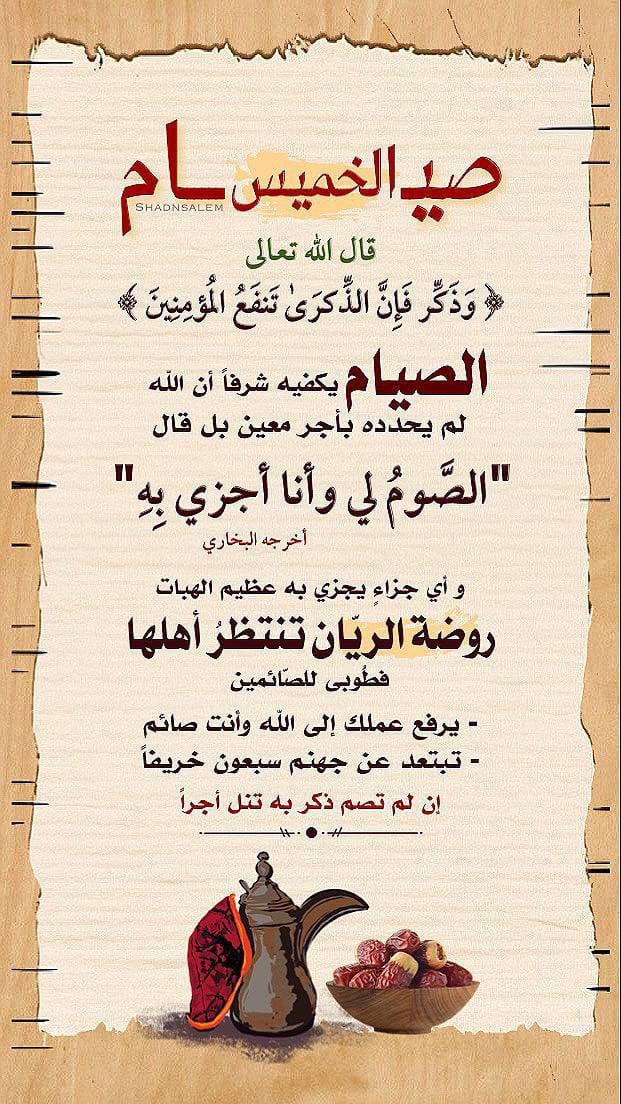 صيام الخميس
SHADNSALEM
قال الله تعالى
﴿ وَذَكِّر فَإِنَّ الذِّكرَىٰ تَنفَعُ المُؤمِنِينَ ﴾
الصيام يكفيه شرفاً أن الله
لم يحدده بأجر معين بل قال
"الصَّومُ لي وأنا أجزي بِهِ"
أخرجه البخاري
و أي جزاءٍ يجزي به عظيم الهبات
روضة الريّان تنتظرُ أهلها
فطُوبى للصّائمين
- يرفع عملك إلى الله وأنت صائم
- تبتعد عن جهنم سبعون خريفاً
إن لم تصم ذكر به تنل أجراً